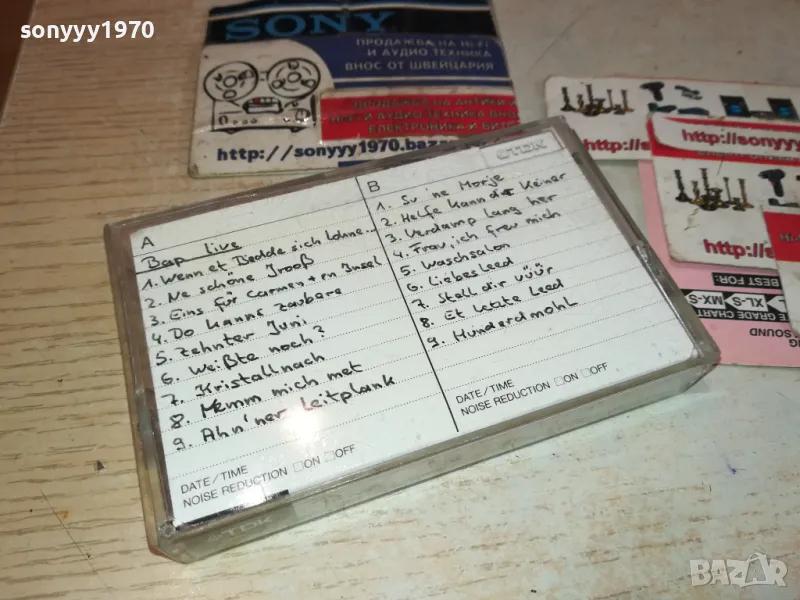 sonyyy1970
sonyyy1970
SONY
ПРОДАЖБА НА HI-FI
И АУДИО ТЕХНИКА
ВНОС ОТ ШВЕЙЦАРИЯ
ПРОДАЖБА НА АНТИКИ И
ЕЛЕКТРОНИКА И
http://sonyyy1970.baza
http://so
http://sony
http://
BEST FOR:
XL-S MX-S
E GRADE CHART
SOUND
TDK
A
Bap live
1. Wenn et Bedde sich lohne...
2. Ne schöne Jrooß
3. Eins für Carmen + en Insel
4. Do kanns zaubere
5. Zehnter Juni
6. Weißte noch?
7. Kristallnach
8. Nemm mich met
9. Ahn'ner Leitplank
DATE/TIME
NOISE REDUCTION □ON □OFF
B
1. Su 'ne Morje
2. Helfe kann dir keiner
3. Verdamp lang her
4. Frau, ich freu mich
5. Waschsalon
6. Liebesleed
7. Stell dir vüür
8. Et letzte Leed
9. Hunderdmohl
DATE/TIME
NOISE REDUCTION □ON □OFF
TDK
BAZAR